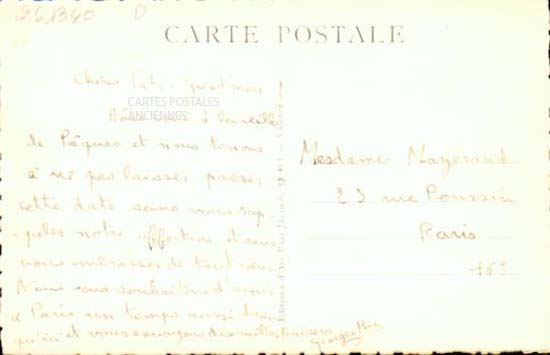 261340 D
CARTE POSTALE
Chère Tati - Grand'mère
CARTES POSTALES
ANCIENNES
à la veille
de Pâques et nous tenons
à ne pas laisser passer
cette date sans vous rap-
peler notre affection et sans
vous embrasser de tout cœur
Nous vous souhaitons d'avoir
à Paris un temps aussi beau
qu'ici et vous envoyons dix mille Baisers
Mesdames Mazeraud
23 rue Poussin
Paris
16e